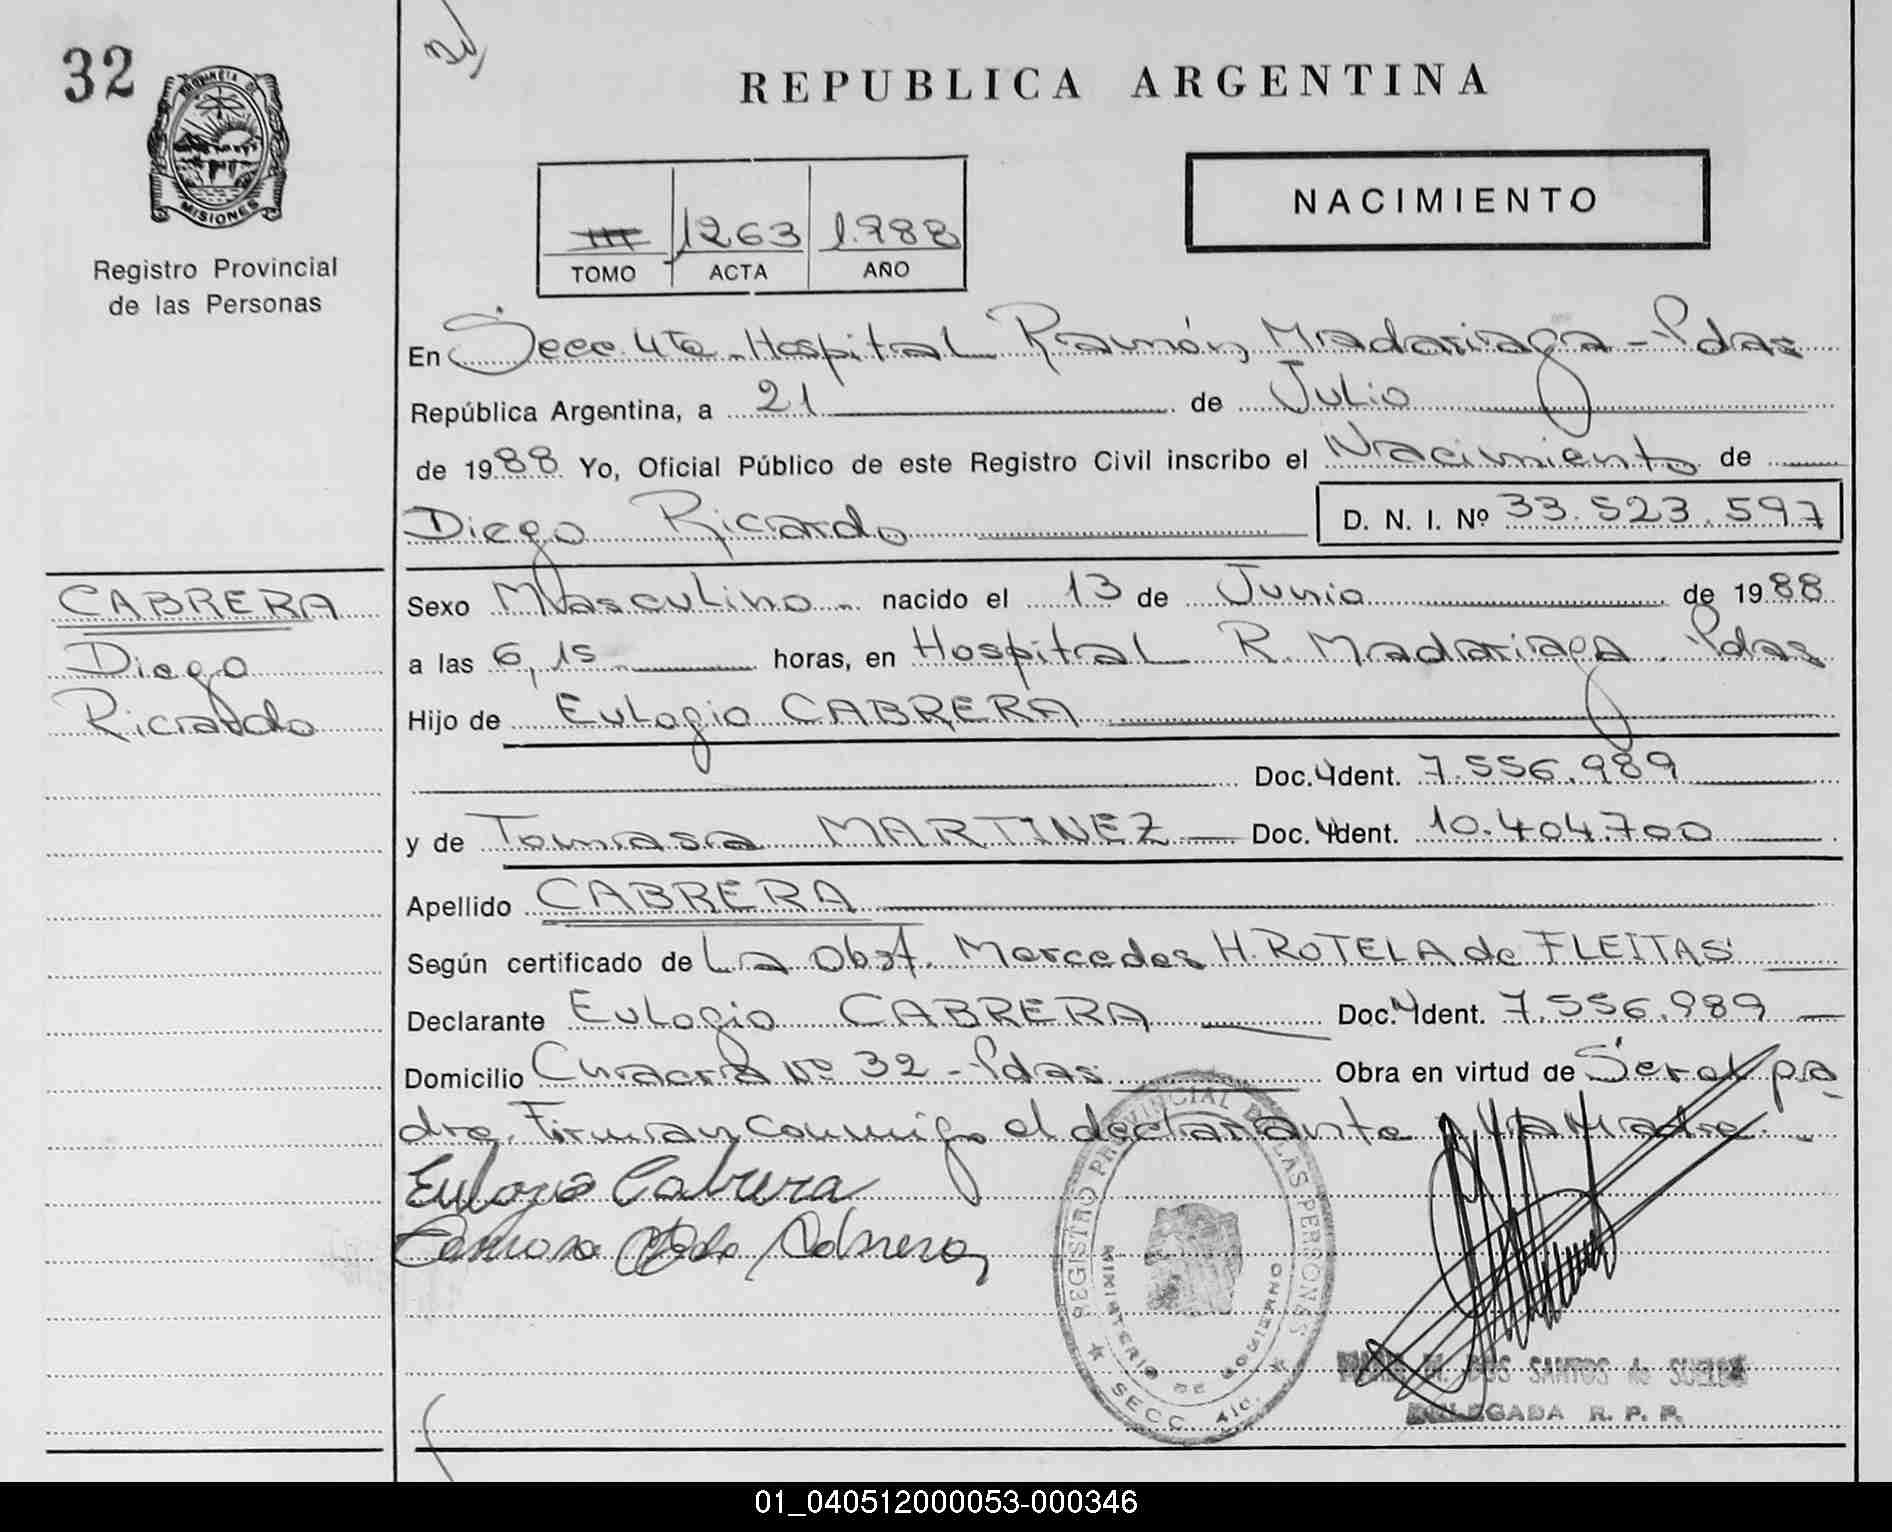 32
PROVINCIA DE
MISIONES
Registro Provincial
de las Personas
REPUBLICA ARGENTINA
NACIMIENTO
III 1263 1.988
TOMO ACTA AÑO
En Secc. 4ta. Hospital Ramón Madariaga - Pdas
República Argentina, a 21 de Julio
de 1988 Yo, Oficial Público de este Registro Civil inscribo el Nacimiento de
Diego Ricardo D. N. I. Nº 33.523.597
CABRERA
Diego
Ricardo
Sexo Masculino nacido el 13 de Junio de 1988
a las 6,15 horas, en Hospital R. Madariaga. Pdas
Hijo de Eulogio CABRERA
Doc. Ident. 7.556.989
y de Tomasa MARTINEZ Doc. Ident. 10.404.700
Apellido CABRERA
Según certificado de La Obst. Mercedes H. ROTELA de FLEITAS
Declarante Eulogio CABRERA Doc. Ident. 7.556.989
Domicilio Chacra Nº 32 - Pdas Obra en virtud de Ser el pa
dre. Firman conmigo el declarante y la Madre.
Eulogio Cabrera
de Cabrera
REGISTRO PROVINCIAL DE LAS PERSONAS
MINISTERIO DE GOBIERNO
SECC. 4ta.
M. DOS SANTOS de
DELEGADA R. P. P.
01_040512000053-000346